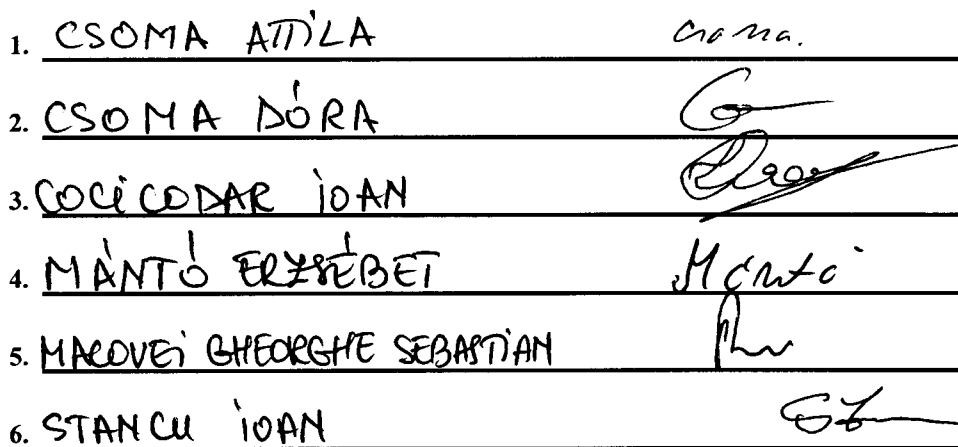 1. CSOMA ATTILA Csoma.
2. CSOMA DÓRA
3. COCICODAR IOAN
4. MÁNTÓ ERZSÉBET Mántó
5. MACOVEI GHEORGHE SEBASTIAN
6. STANCU IOAN